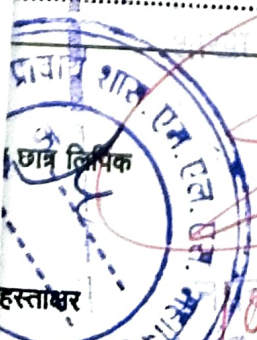 प्राचार्य शास. एम. एल. बी.
छात्र लिपिक
हस्ताक्षर